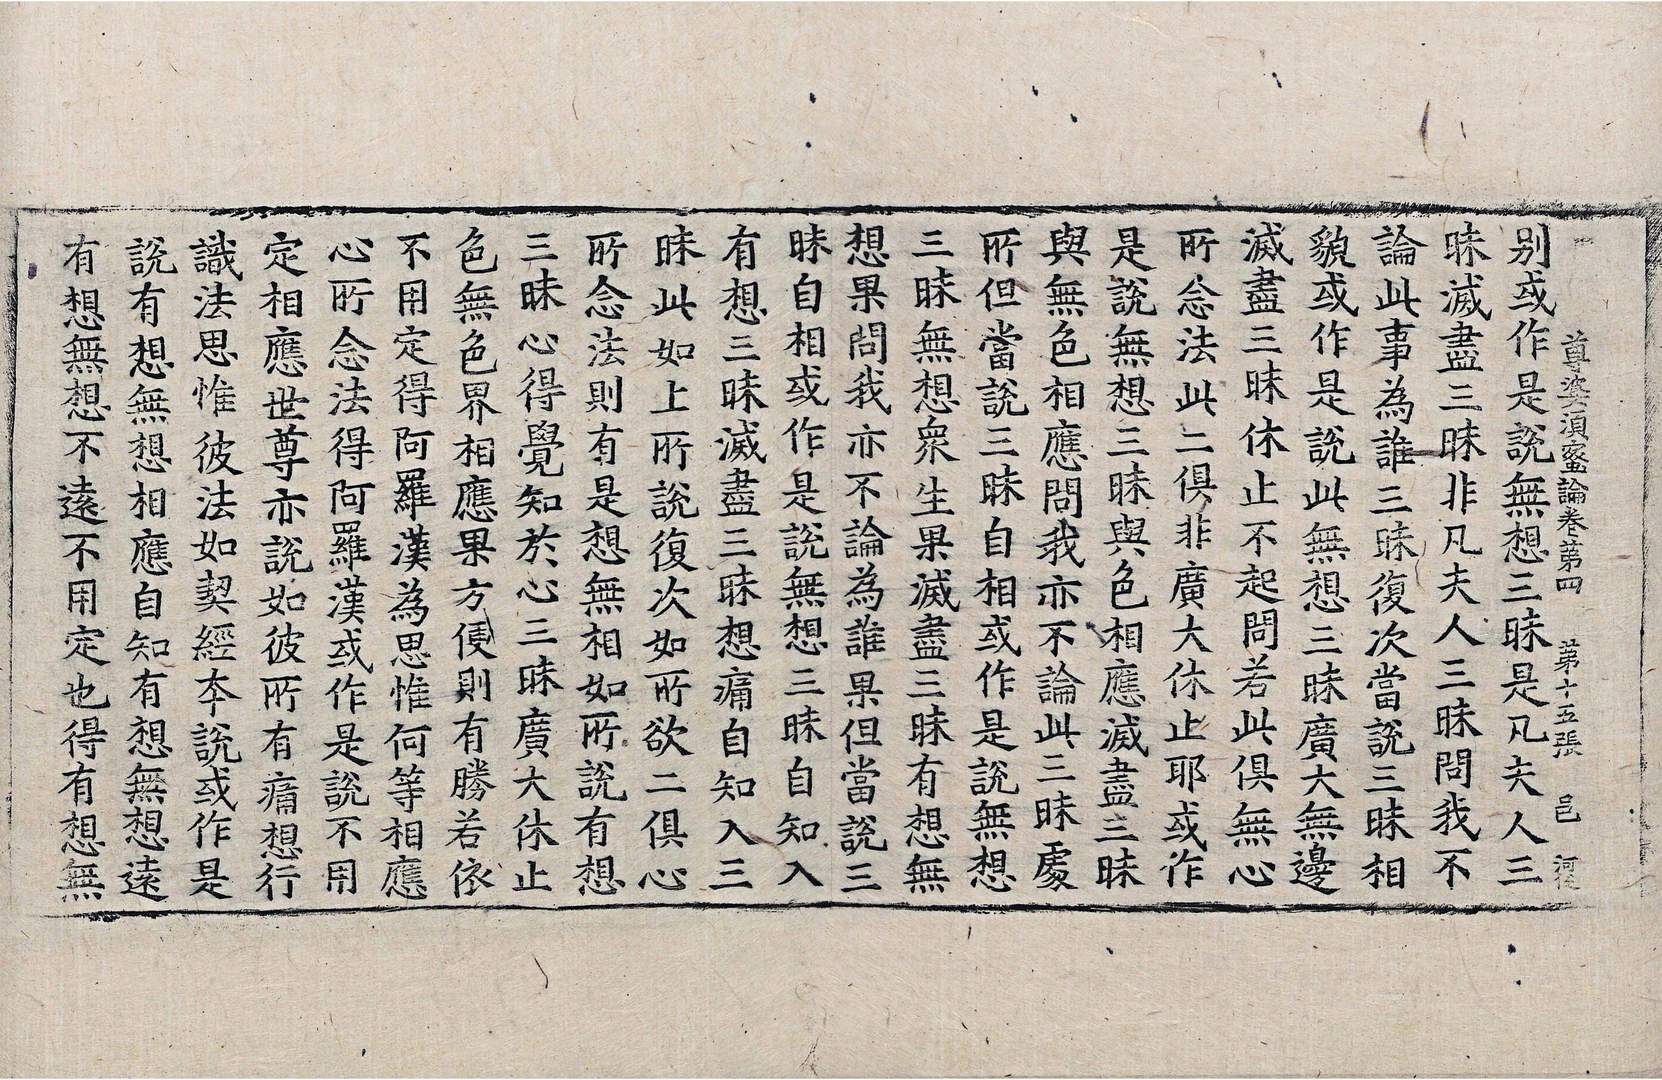 尊婆須蜜論卷第四 第十五張 邑
别或作是說無想三昧是凡夫人三
昧滅盡三昧非凡夫人三昧問我不
論此事為誰三昧復次當說三昧相
貌或作是說此無想三昧廣大無邊
滅盡三昧休止不起問若此俱無心
所念法此二俱非廣大休止耶或作
是說無想三昧與色相應滅盡三昧
與無色相應問我亦不論此三昧處
所但當說三昧自相或作是說無想
三昧無想衆生果滅盡三昧有想無
想果問我亦不論為誰果但當說三
昧自相或作是說無想三昧自知入
有想三昧滅盡三昧想痛自知入三
昧此如上所說復次如所欲二俱心
所念法則有是想無相如所說有想
三昧心得覺知於心三昧廣大休止
色無色界相應果方便則有勝若依
不用定得阿羅漢為思惟何等相應
心所念法得阿羅漢或作是說不用
定相應世尊亦說如彼所有痛想行
識法思惟彼法如契經本說或作是
說有想無想相應自知有想無想遠
有想無想不遠不用定也得有想無